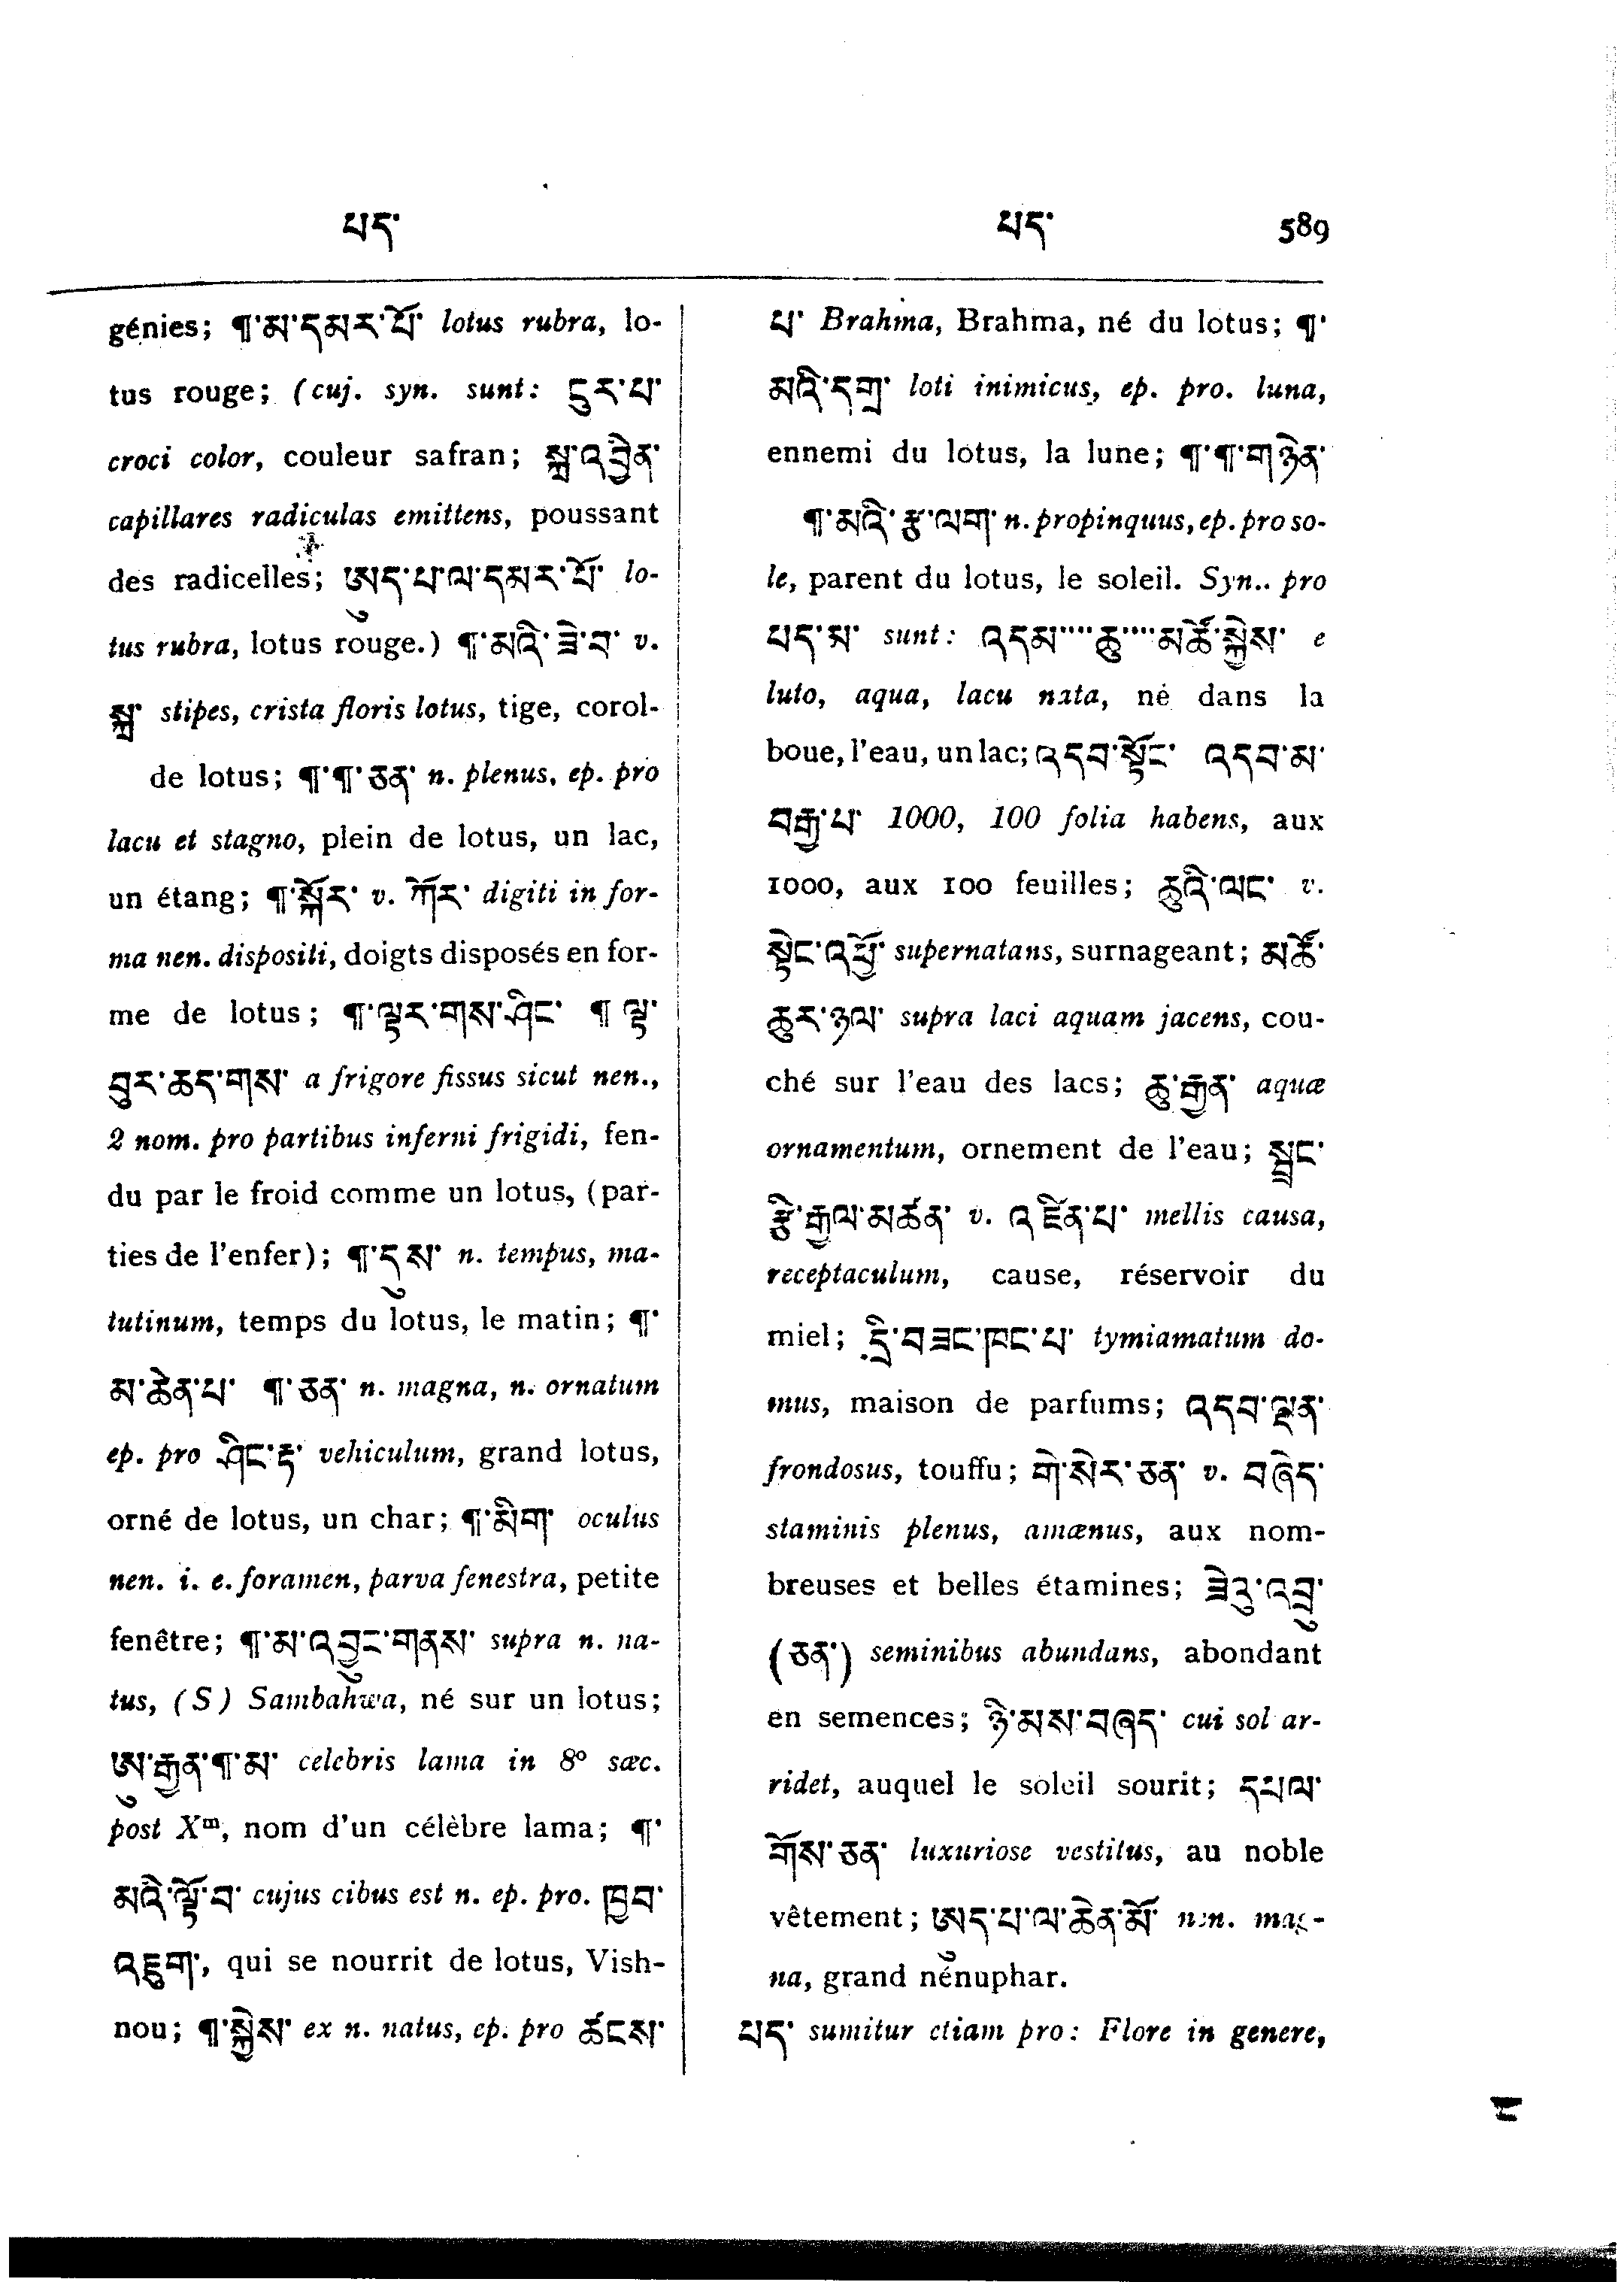 པད་
པད་ 589
génies; ¶་མ་དམར་པོ་ lotus rubra, lo-
tus rouge; (cuj. syn. sunt: དུར་པ་
croci color, couleur safran; སྐྲ་འབྱིན་
capillares radiculas emittens, poussant
des radicelles; ཨུད་པ་ལ་དམར་པོ་ lo-
tus rubra, lotus rouge.) ¶་མའི་ཟེ་བ་ v.
སྐྲ་ stipes, crista floris lotus, tige, corol-
de lotus; ¶་¶་ཅན་ n. plenus, ep. pro
lacu et stagno, plein de lotus, un lac,
un étang; ¶་སྐོར་ v. ཀོར་ digiti in for-
ma nen. dispositi, doigts disposés en for-
me de lotus; ¶་ལྟར་གས་ཤིང་ ¶ ལྟ་
བུར་ཆད་གས་ a frigore fissus sicut nen.,
2 nom. pro partibus inferni frigidi, fen-
du par le froid comme un lotus, (par-
ties de l'enfer); ¶་དུས་ n. tempus, ma-
tutinum, temps du lotus, le matin; ¶་
མ་ཆེན་པ་ ¶་ཅན་ n. magna, n. ornatum
ep. pro ཤིང་རྟ་ vehiculum, grand lotus,
orné de lotus, un char; ¶་མིག་ oculus
nen. i. e. foramen, parva fenestra, petite
fenêtre; ¶་མ་འབྱུང་གནས་ supra n. na-
tus, (S) Sambahwa, né sur un lotus;
ཨུ་རྒྱན་¶་མ་ celebris lama in 8º sæc.
post Xᵐ, nom d'un célèbre lama; ¶་
མའི་ལྟོ་བ་ cujus cibus est n. ep. pro. ཁྱབ་
འཇུག་, qui se nourrit de lotus, Vish-
nou; ¶་སྐྱེས་ ex n. natus, ep. pro ཚངས་
པ་ Brahma, Brahma, né du lotus; ¶་
མའི་དགྲ་ loti inimicus, ep. pro. luna,
ennemi du lotus, la lune; ¶་¶་གཉེན་
¶་མའི་རྩ་ལག་ n. propinquus, ep. pro so-
le, parent du lotus, le soleil. Syn.. pro
པད་མ་ sunt: འདམ་···ཆུ་···མཚོ་སྐྱེས་ e
luto, aqua, lacu nata, né dans la
boue, l'eau, un lac; འདབ་སྟོང་ འདབ་མ་
བརྒྱ་པ་ 1000, 100 folia habens, aux
1000, aux 100 feuilles; ཆུའི་ལང་ v.
སྟེང་འཕྱོ་ supernatans, surnageant; མཚོ་
ཆུར་ཉལ་ supra laci aquam jacens, cou-
ché sur l'eau des lacs; ཆུ་རྒྱན་ aquæ
ornamentum, ornement de l'eau; སྦྲང་
རྩི་རྒྱལ་མཚན་ v. འཛིན་པ་ mellis causa,
receptaculum, cause, réservoir du
miel; དྲི་བཟང་ཁང་པ་ tymiamatum do-
mus, maison de parfums; འདབ་ལྡན་
frondosus, touffu; གེ་སེར་ཅན་ v. བཞེད་
staminis plenus, amœnus, aux nom-
breuses et belles étamines; ཟེའུ་འབྲུ་
(ཅན་) seminibus abundans, abondant
en semences; ཉི་མས་བཞད་ cui sol ar-
ridet, auquel le soleil sourit; དཔལ་
གོས་ཅན་ luxuriose vestitus, au noble
vêtement; ཨུད་པ་ལ་ཆེན་མོ་ nen. mag-
na, grand nénuphar.
པད་ sumitur etiam pro: Flore in genere,